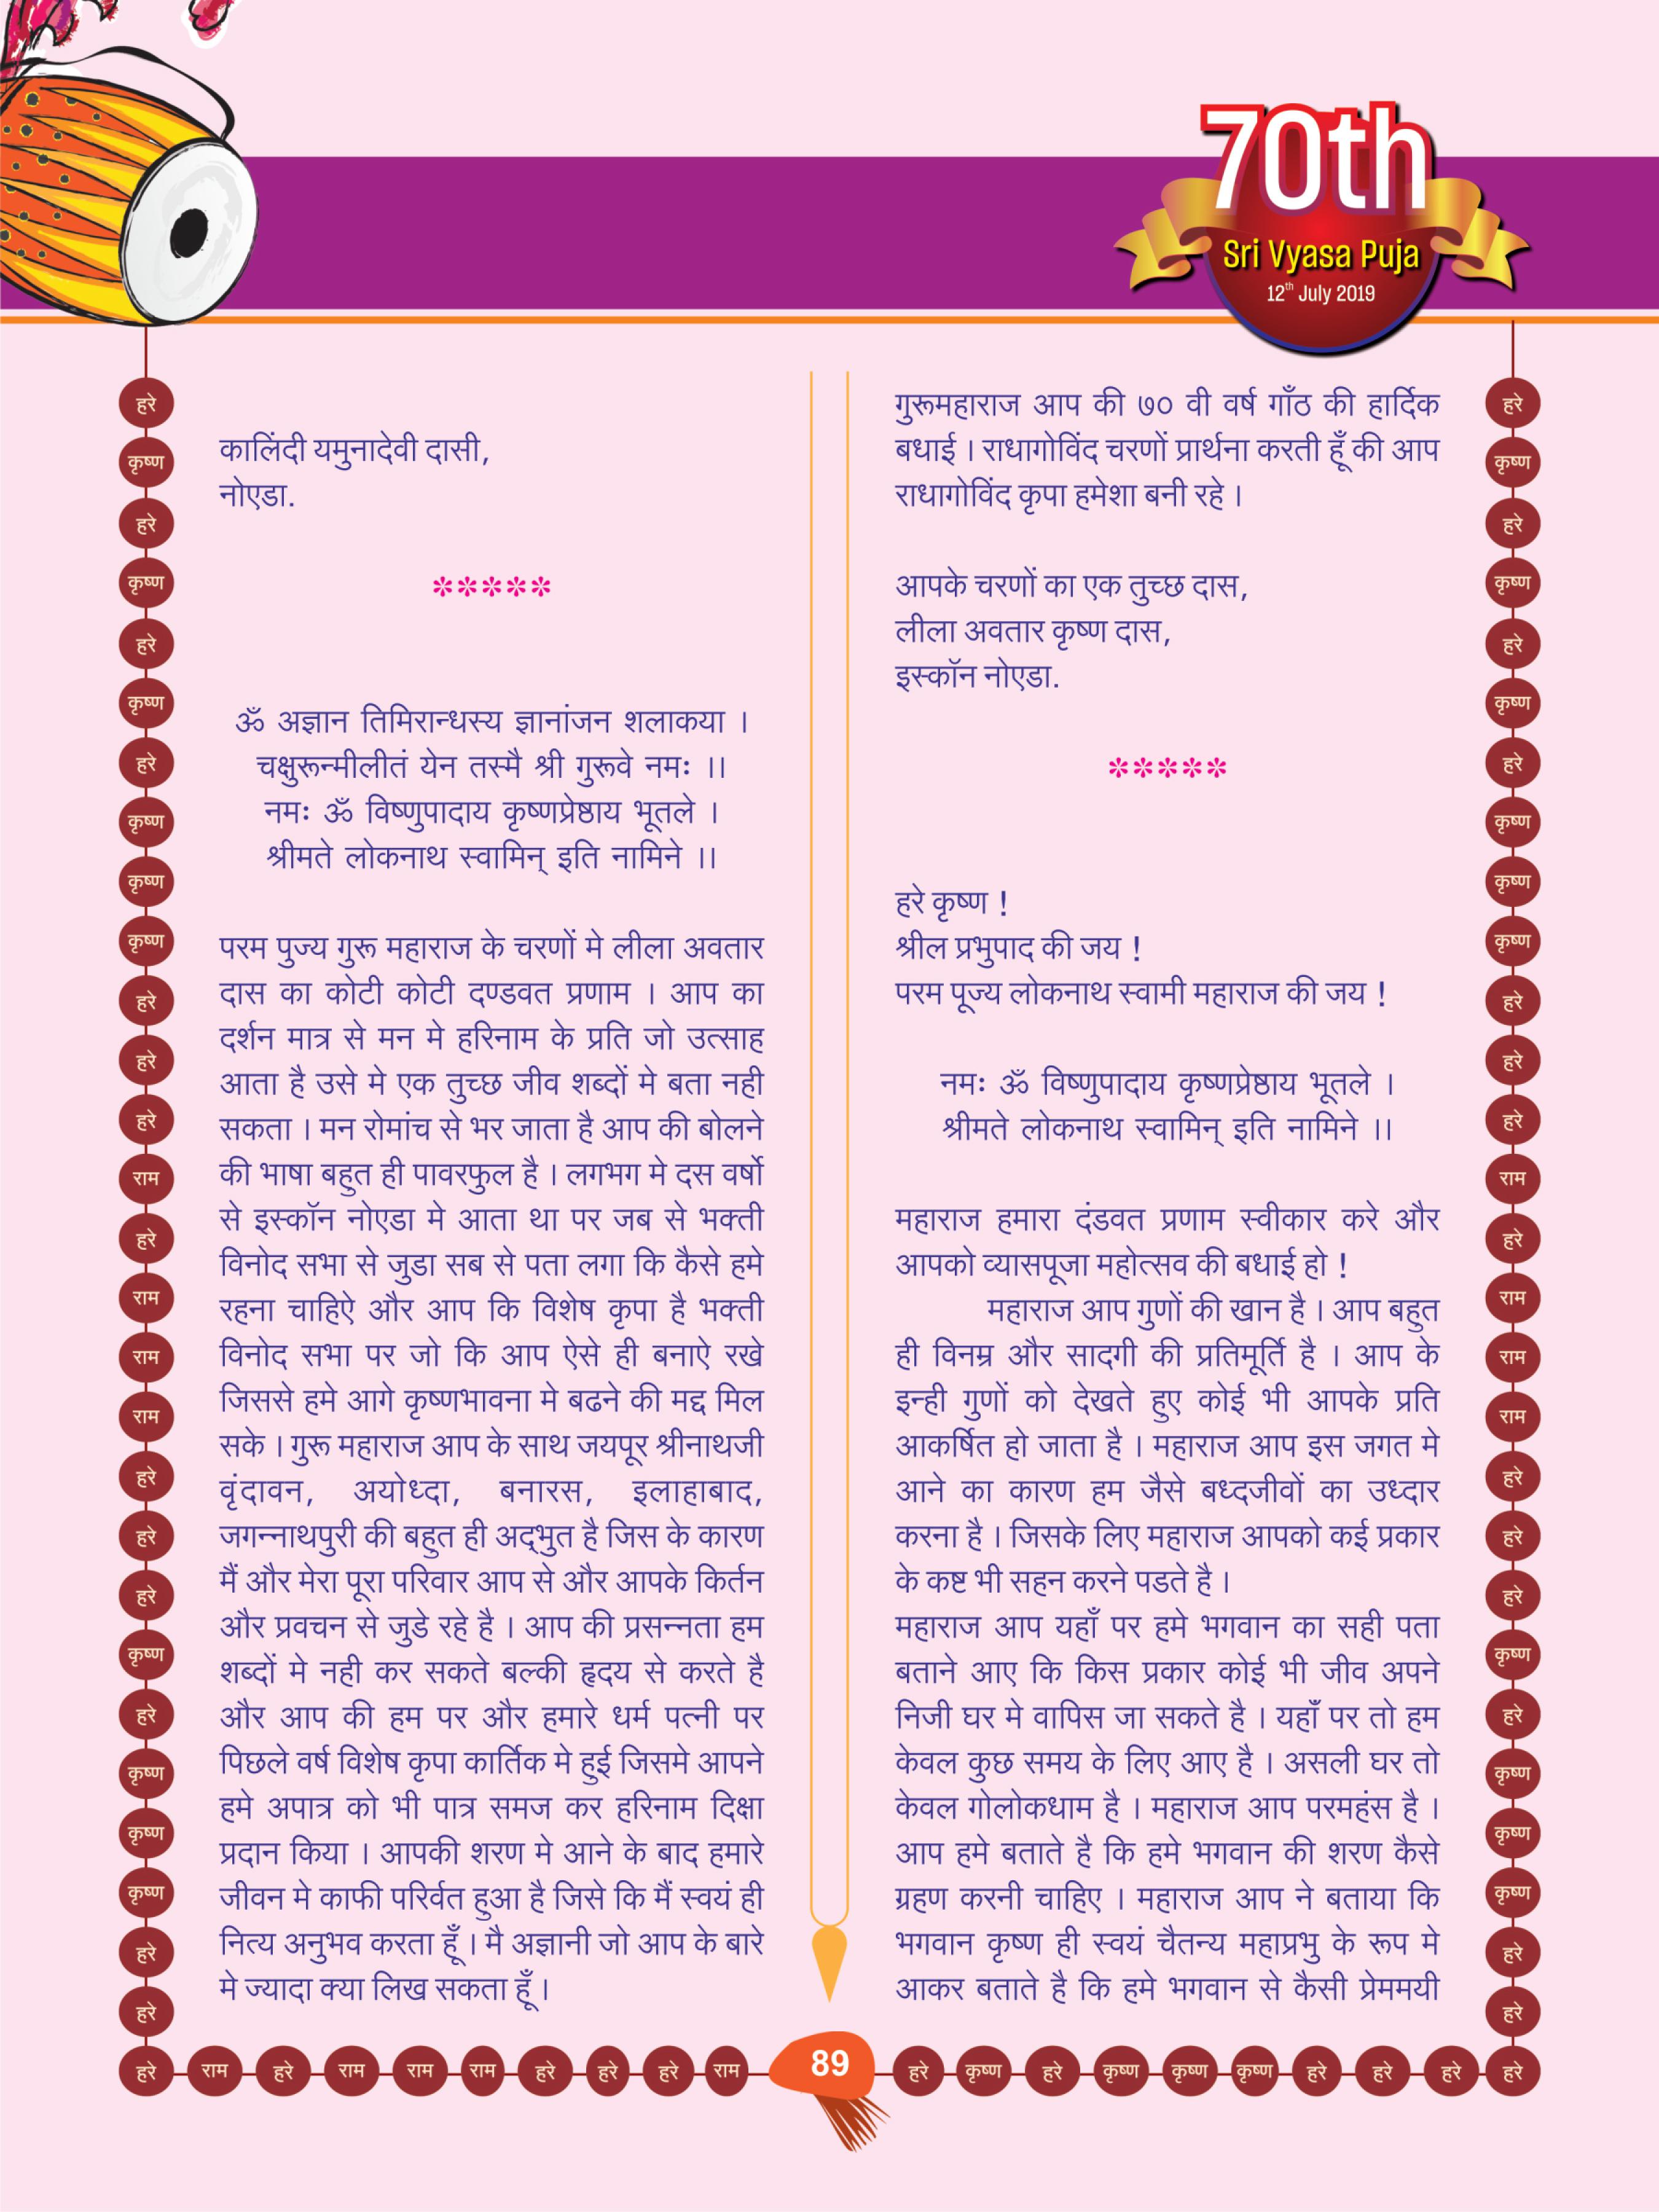 70th
Sri Vyasa Puja
12th July 2019
कालिंदी यमुनादेवी दासी,
नोएडा.
*****
ॐ अज्ञान तिमिरान्धस्य ज्ञानांजन शलाकया ।
चक्षुरून्मीलीतं येन तस्मै श्री गुरूवे नमः ।।
नमः ॐ विष्णुपादाय कृष्णप्रेष्ठाय भूतले ।
श्रीमते लोकनाथ स्वामिन् इति नामिने ।।
परम पुज्य गुरू महाराज के चरणों मे लीला अवतार
दास का कोटी कोटी दण्डवत प्रणाम । आप का
दर्शन मात्र से मन मे हरिनाम के प्रति जो उत्साह
आता है उसे मे एक तुच्छ जीव शब्दों मे बता नही
सकता । मन रोमांच से भर जाता है आप की बोलने
की भाषा बहुत ही पावरफुल है । लगभग मे दस वर्षो
से इस्कॉन नोएडा मे आता था पर जब से भक्ती
विनोद सभा से जुडा सब से पता लगा कि कैसे हमे
रहना चाहिऐ और आप कि विशेष कृपा है भक्ती
विनोद सभा पर जो कि आप ऐसे ही बनाऐ रखे
जिससे हमे आगे कृष्णभावना मे बढने की मद्द मिल
सके । गुरू महाराज आप के साथ जयपूर श्रीनाथजी
वृंदावन, अयोध्दा, बनारस, इलाहाबाद,
जगन्नाथपुरी की बहुत ही अद्‌भुत है जिस के कारण
मैं और मेरा पूरा परिवार आप से और आपके किर्तन
और प्रवचन से जुडे रहे है । आप की प्रसन्नता हम
शब्दों मे नही कर सकते बल्की हृदय से करते है
और आप की हम पर और हमारे धर्म पत्नी पर
पिछले वर्ष विशेष कृपा कार्तिक मे हुई जिसमे आपने
हमे अपात्र को भी पात्र समज कर हरिनाम दिक्षा
प्रदान किया । आपकी शरण मे आने के बाद हमारे
जीवन मे काफी परिर्वत हुआ है जिसे कि मैं स्वयं ही
नित्य अनुभव करता हूँ । मै अज्ञानी जो आप के बारे
मे ज्यादा क्या लिख सकता हूँ ।
गुरूमहाराज आप की ७० वी वर्ष गाँठ की हार्दिक
बधाई । राधागोविंद चरणों प्रार्थना करती हूँ की आप
राधागोविंद कृपा हमेशा बनी रहे ।
आपके चरणों का एक तुच्छ दास,
लीला अवतार कृष्ण दास,
इस्कॉन नोएडा.
*****
हरे कृष्ण !
श्रील प्रभुपाद की जय !
परम पूज्य लोकनाथ स्वामी महाराज की जय !
नमः ॐ विष्णुपादाय कृष्णप्रेष्ठाय भूतले ।
श्रीमते लोकनाथ स्वामिन् इति नामिने ।।
महाराज हमारा दंडवत प्रणाम स्वीकार करे और
आपको व्यासपूजा महोत्सव की बधाई हो !
महाराज आप गुणों की खान है । आप बहुत
ही विनम्र और सादगी की प्रतिमूर्ति है । आप के
इन्ही गुणों को देखते हुए कोई भी आपके प्रति
आकर्षित हो जाता है । महाराज आप इस जगत मे
आने का कारण हम जैसे बध्दजीवों का उध्दार
करना है । जिसके लिए महाराज आपको कई प्रकार
के कष्ट भी सहन करने पडते है ।
महाराज आप यहाँ पर हमे भगवान का सही पता
बताने आए कि किस प्रकार कोई भी जीव अपने
निजी घर मे वापिस जा सकते है । यहाँ पर तो हम
केवल कुछ समय के लिए आए है । असली घर तो
केवल गोलोकधाम है । महाराज आप परमहंस है ।
आप हमे बताते है कि हमे भगवान की शरण कैसे
ग्रहण करनी चाहिए । महाराज आप ने बताया कि
भगवान कृष्ण ही स्वयं चैतन्य महाप्रभु के रूप मे
आकर बताते है कि हमे भगवान से कैसी प्रेममयी
हरे
कृष्ण
हरे
कृष्ण
हरे
कृष्ण
हरे
कृष्ण
कृष्ण
कृष्ण
हरे
हरे
हरे
राम
हरे
राम
राम
राम
हरे
हरे
हरे
कृष्ण
हरे
कृष्ण
कृष्ण
कृष्ण
हरे
हरे
हरे
कृष्ण
हरे
कृष्ण
हरे
कृष्ण
हरे
कृष्ण
कृष्ण
कृष्ण
हरे
हरे
हरे
राम
हरे
राम
राम
राम
हरे
हरे
हरे
कृष्ण
हरे
कृष्ण
कृष्ण
कृष्ण
हरे
हरे
हरे राम हरे राम राम राम हरे हरे हरे राम 89 हरे कृष्ण हरे कृष्ण कृष्ण कृष्ण हरे हरे हरे हरे